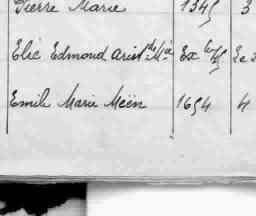 Pierre Marie 1345 3
Elie Edmond Arist de Mie Ex
Emile Marie Méen 1654 4